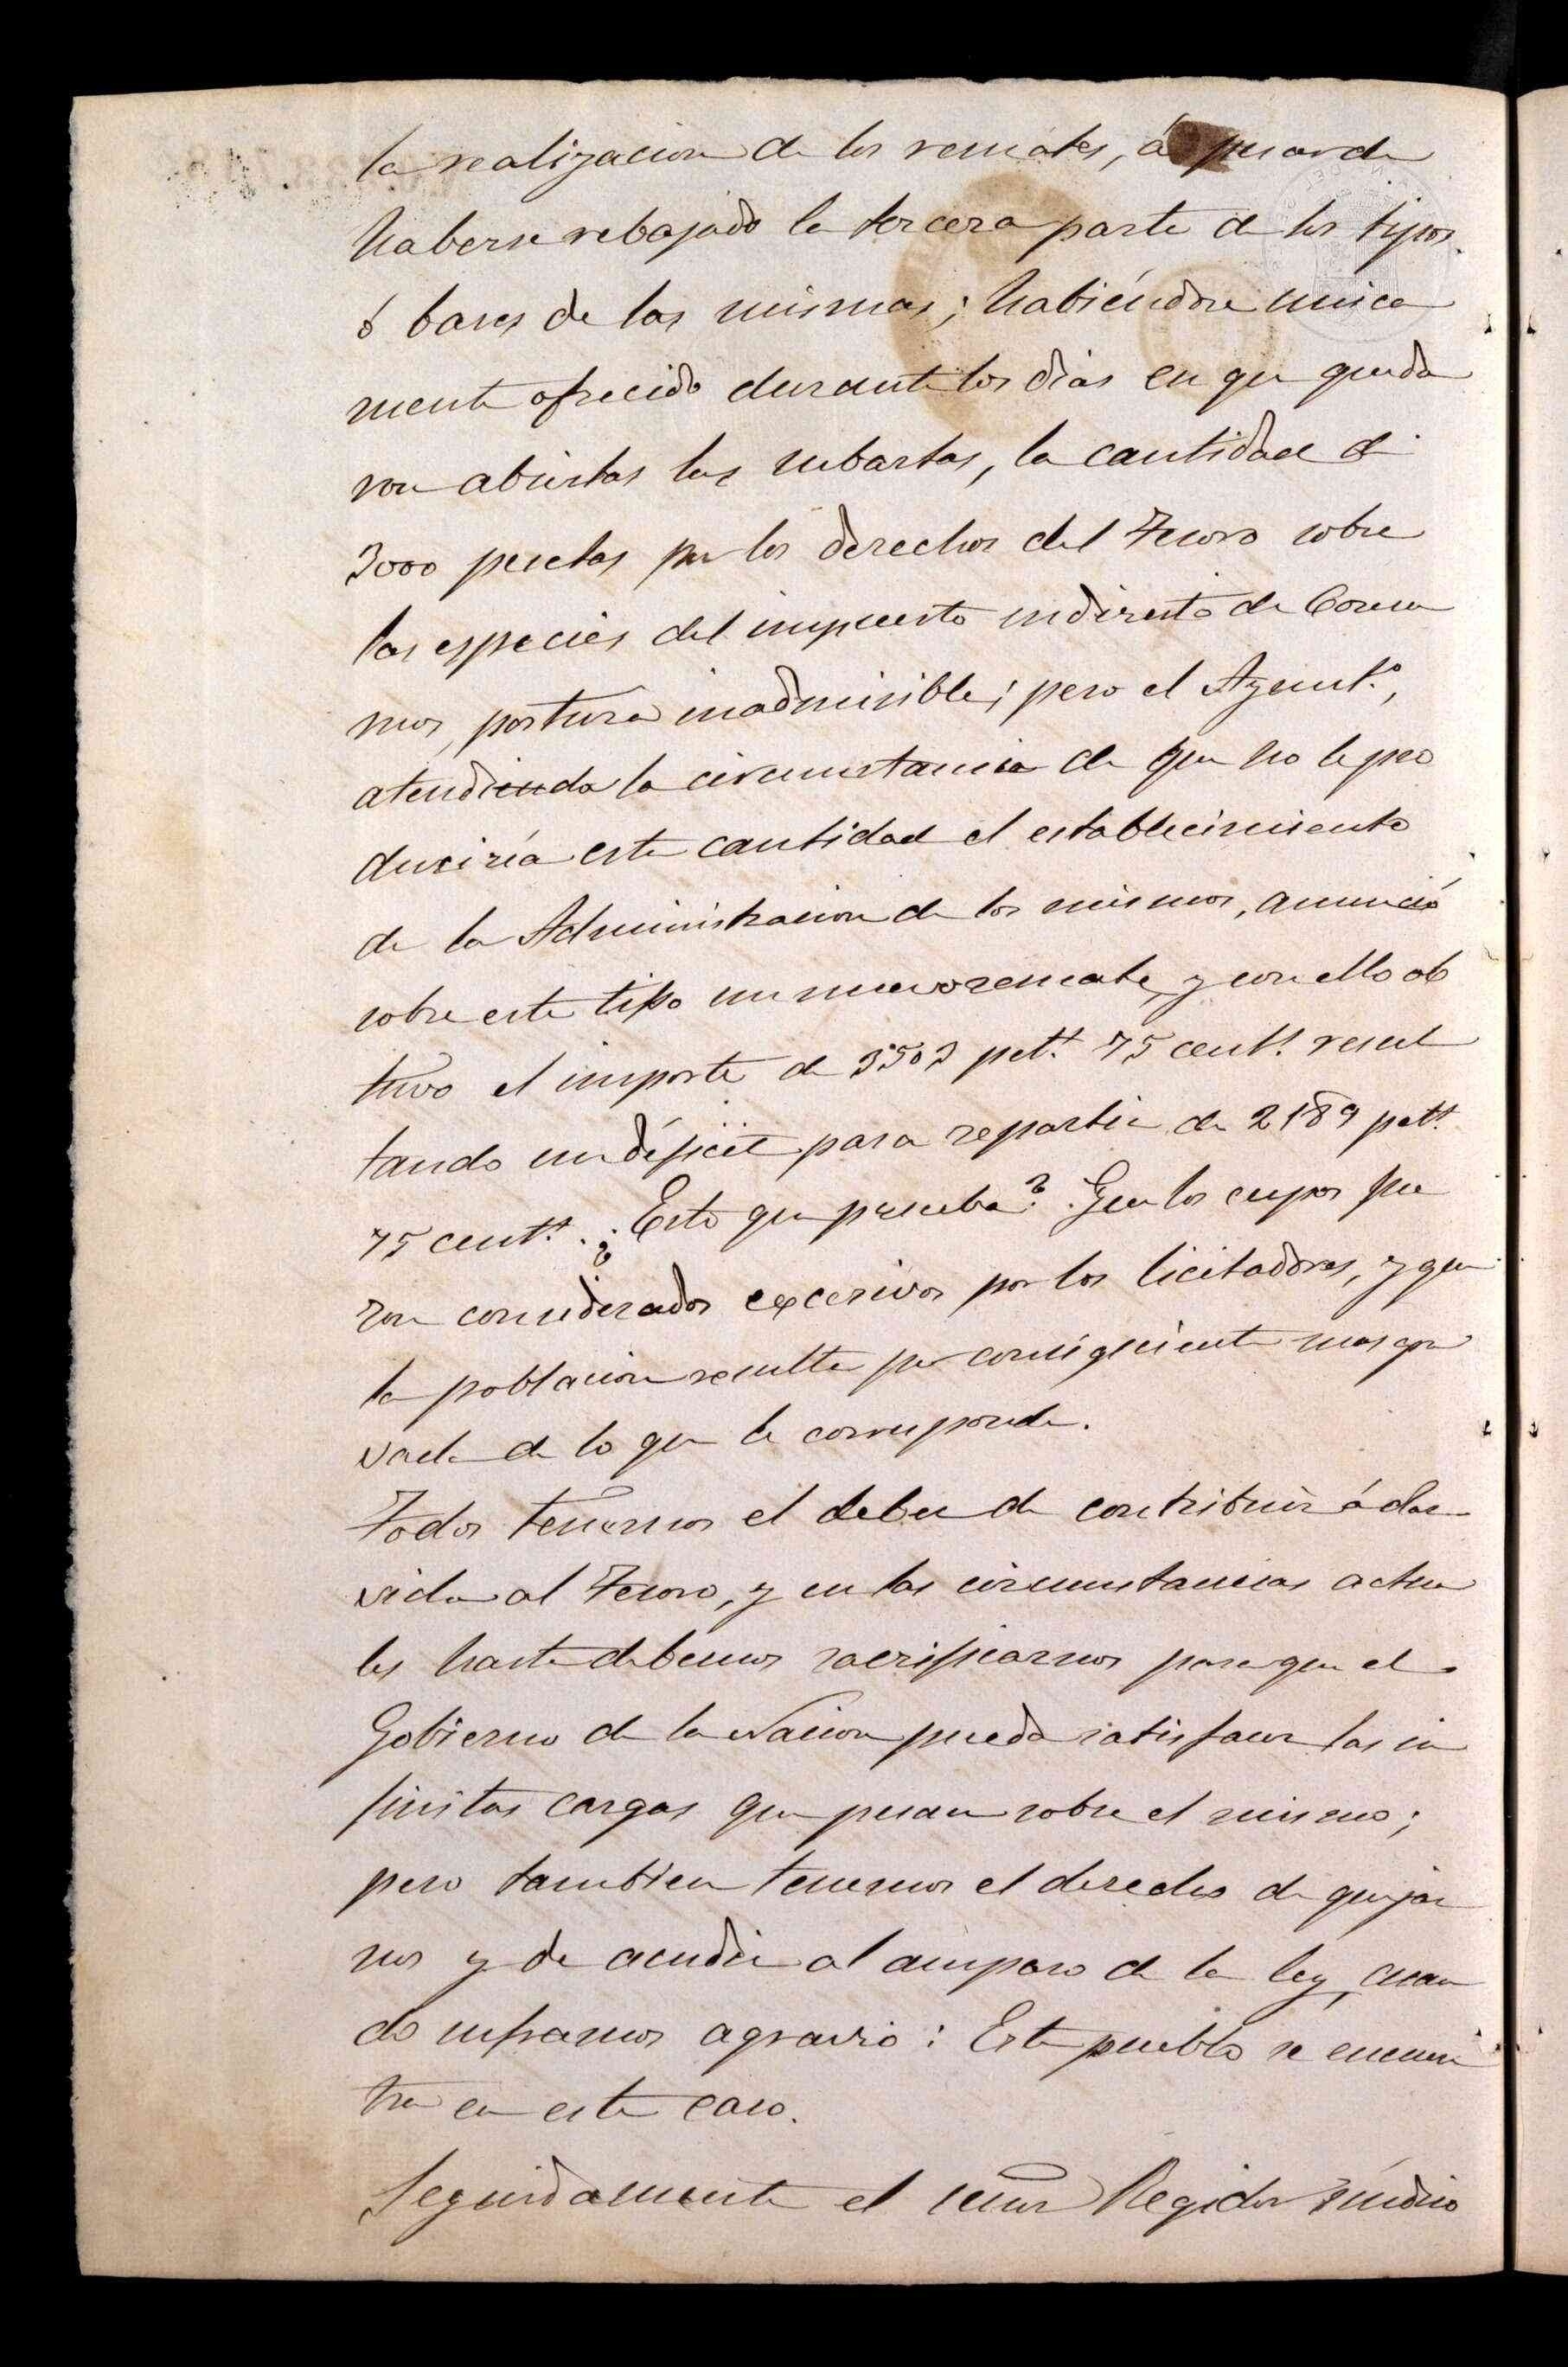 la realizacion de los remates, á pesar de
haberse rebajado la tercera parte de los tipos
ó bases de las mismas; habiéndose unica
mente ofrecido durante los dias en que queda
ron abiertas las subastas, la cantidad de
3000 pesetas por los derechos del Tesoro sobre
las especies del impuesto indirecto de Consu
mos, postura inadmisible; pero el Ayunt.º,
atendienda la circunstancia de que no le pro
duciría esta cantidad el establecimiento
de la Administracion de los mismos, anunció
sobre este tipo un nuevo remate, y con ello ob
tuvo el importe de 3503 pet.s 75 cent.s resul
tando un déficit para repartir de 2189 pet.s
75 cent.s. ¿Esto que prueba? Que los cupos fue
ron considerados excesivos por los licitadores, y que
la poblacion resulta por consiguiente mas gra
vada de lo que le corresponde.
Todos tenemos el deber de contribuir á dar
vida al Tesoro, y en las circunstancias actua
les hasta debemos sacrificarnos para que el
Gobierno de la Nacion pueda satisfacer las in
finitas cargas que pesan sobre el mismo;
pero tambien tenemos el derecho de quejar
nos y de acudir al amparo de la ley, cuan
do suframos agravio: Este pueblo se encuen
tra en este caso.
Seguidamente el señor Regidor Síndico